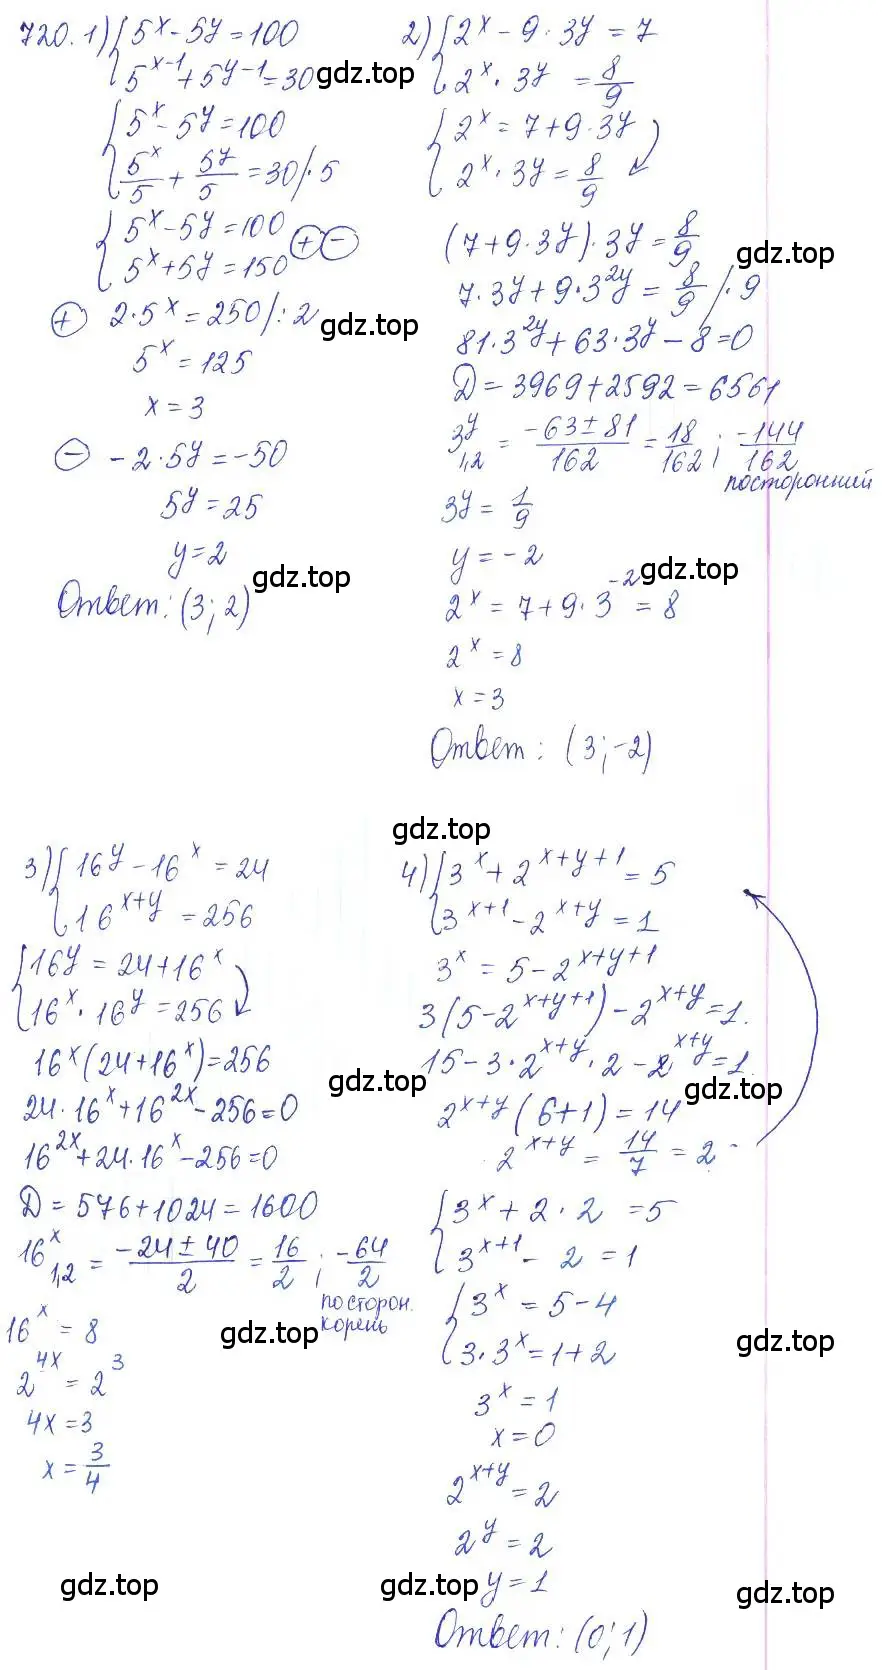 720. 1) { 5^x - 5^y = 100
5^(x-1) + 5^(y-1) = 30 gdz.top
{ 5^x - 5^y = 100
5^x/5 + 5^y/5 = 30 /· 5
{ 5^x - 5^y = 100
5^x + 5^y = 150 ⊕ ⊖
⊕ 2·5^x = 250 /: 2 gdz.top
5^x = 125
x = 3
⊖ -2·5^y = -50
5^y = 25
y = 2 gdz.top
Ответ: (3; 2)
2) { 2^x - 9·3^y = 7
2^x · 3^y = 8/9
{ 2^x = 7 + 9·3^y
2^x · 3^y = 8/9
(7 + 9·3^y)·3^y = 8/9 gdz.top
7·3^y + 9·3^(2y) = 8/9 /· 9
81·3^(2y) + 63·3^y - 8 = 0
D = 3969 + 2592 = 6561
3^y 1,2 = (-63 ± 81)/162 = 18/162 ; -144/162
посторонний
3^y = 1/9
y = -2 gdz.top
2^x = 7 + 9·3^(-2) = 8
2^x = 8
x = 3
Ответ: (3; -2)
gdz.top
3) { 16^y - 16^x = 24
16^(x+y) = 256
{ 16^y = 24 + 16^x
16^x · 16^y = 256
16^x (24 + 16^x) = 256
gdz.top
24·16^x + 16^(2x) - 256 = 0
16^(2x) + 24·16^x - 256 = 0
D = 576 + 1024 = 1600
16^x 1,2 = (-24 ± 40)/2 = 16/2 ; -64/2
посторон.
корень
16^x = 8 gdz.top
2^(4x) = 2^3
4x = 3
x = 3/4
gdz.top
4) { 3^x + 2^(x+y+1) = 5
3^(x+1) - 2^(x+y) = 1
3^x = 5 - 2^(x+y+1)
3(5 - 2^(x+y+1)) - 2^(x+y) = 1.
15 - 3·2^(x+y)·2 - 2^(x+y) = 1.
gdz.top
2^(x+y) (6+1) = 14
2^(x+y) = 14/7 = 2
{ 3^x + 2·2 = 5
3^(x+1) - 2 = 1
{ 3^x = 5 - 4
3·3^x = 1 + 2 gdz.top
3^x = 1
x = 0
2^(x+y) = 2
2^y = 2
gdz.top y = 1 gdz.top
Ответ: (0; 1)